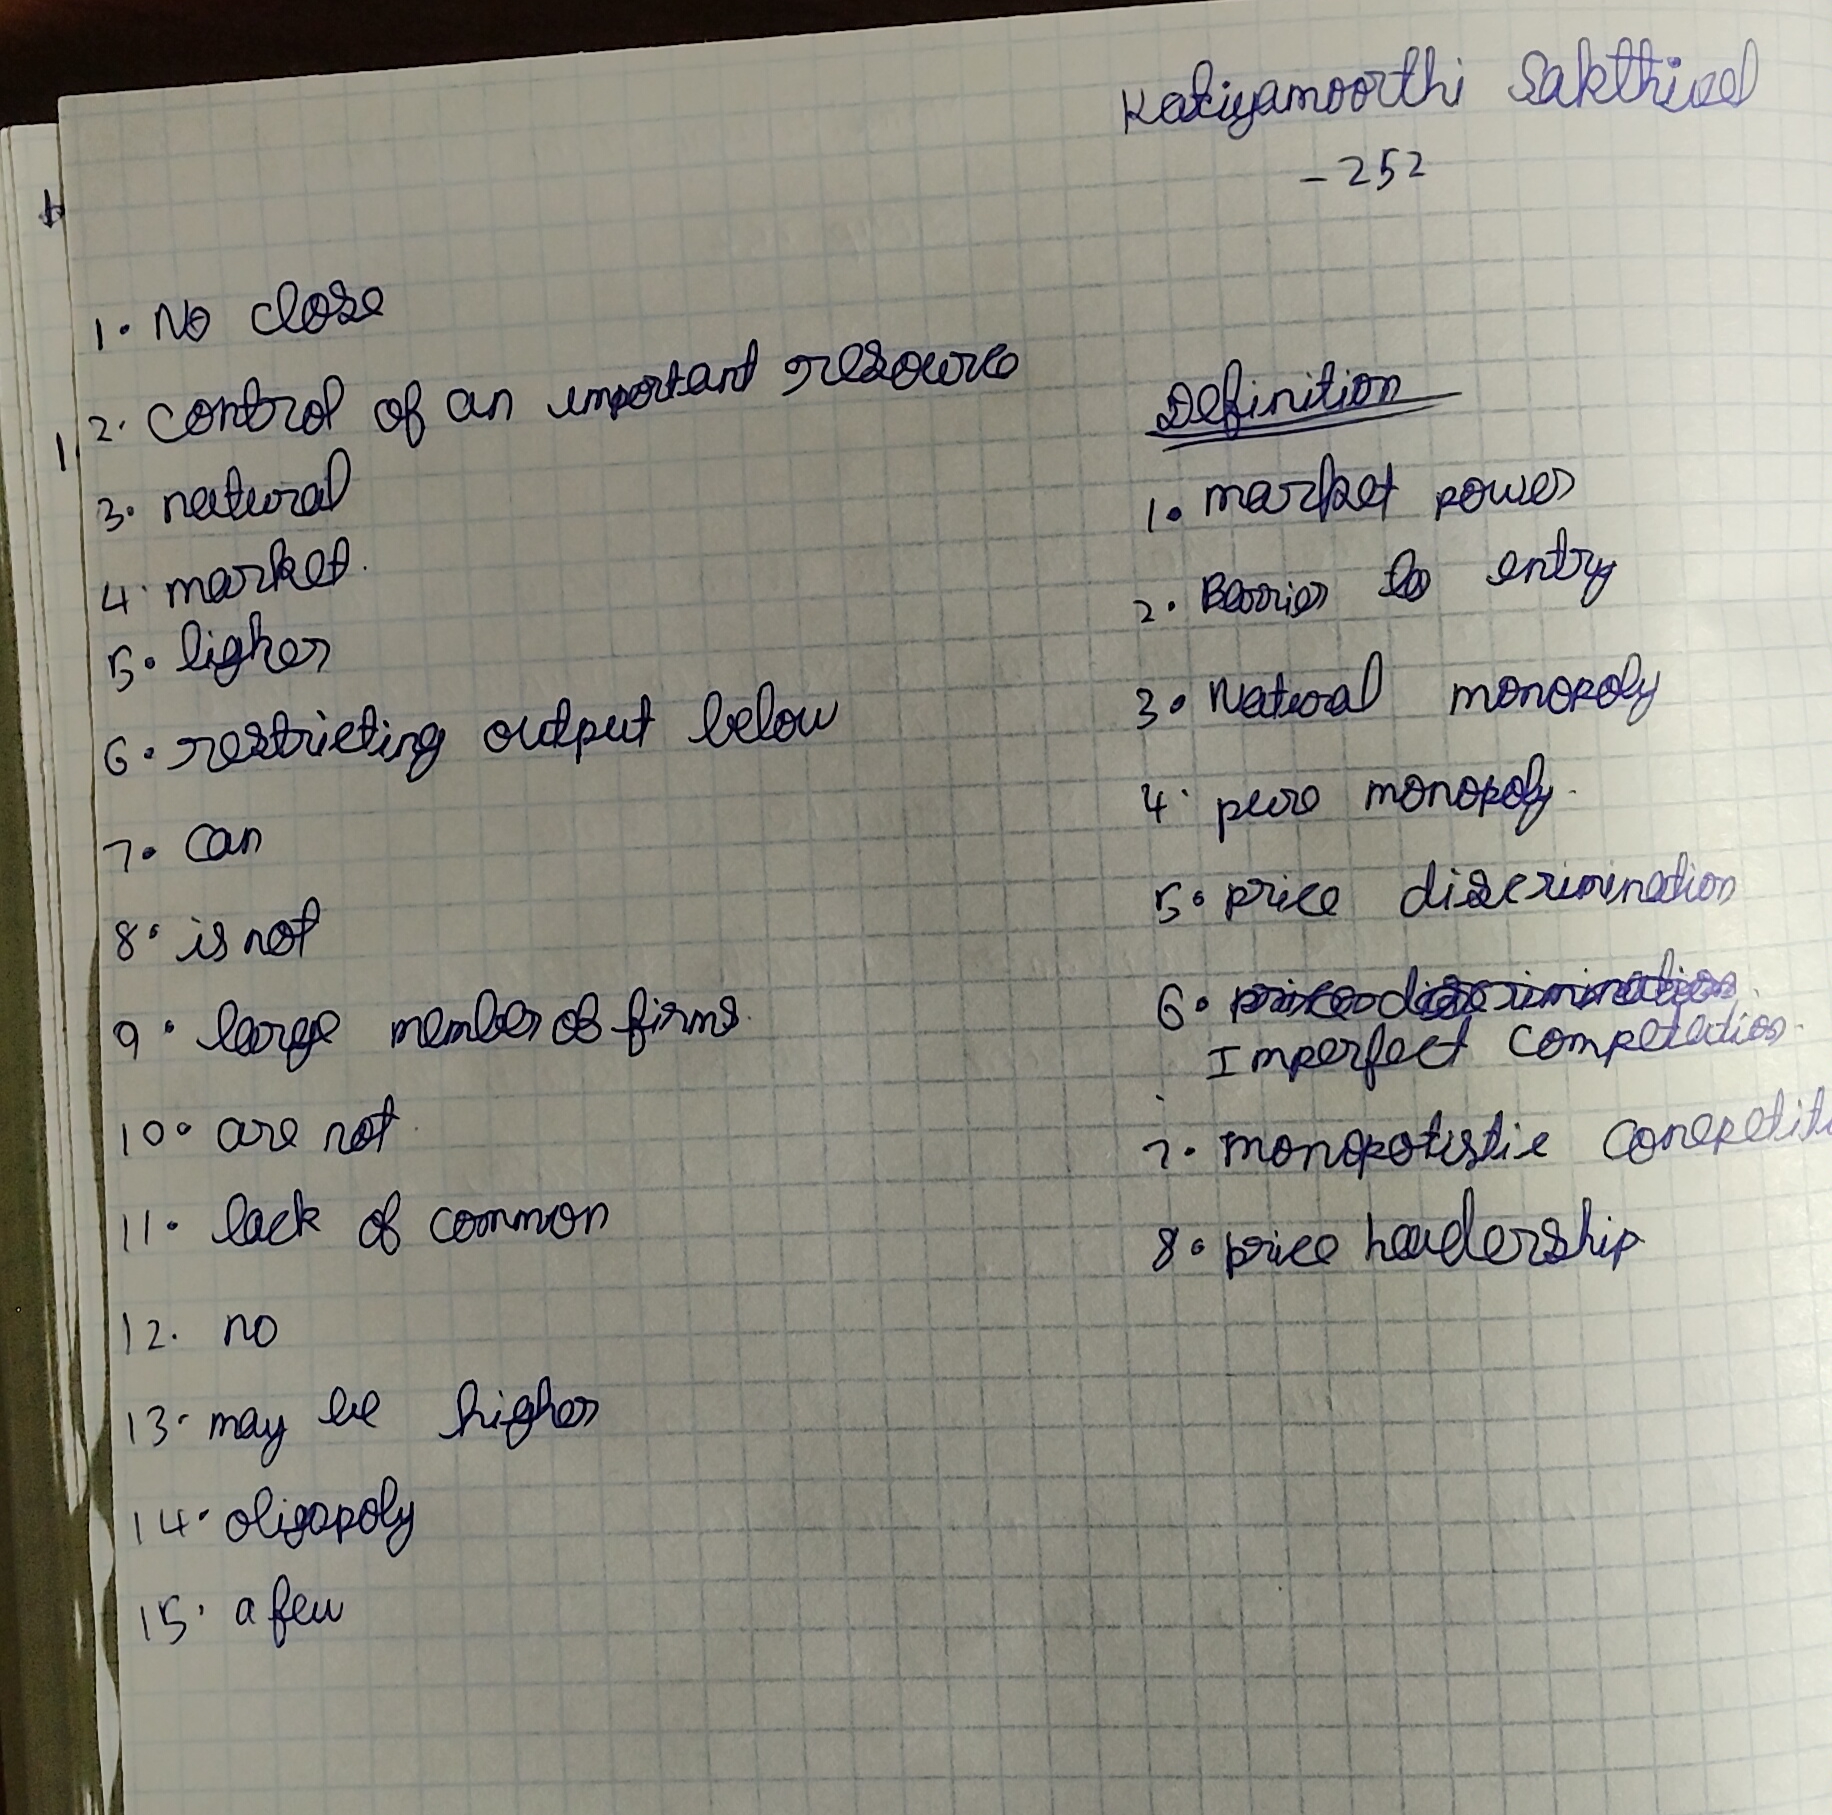 Kaliyamoorthi Sakthivel
- 252
1. No close
2. control of an important resource
3. natural
4. market.
5. ligher
6. restricting output below
7. can
8. is not
9. large member of firms.
10. are not.
11. lack of common
12. no
13. may be higher
14. oligopoly
15. a few
Definition
1. market power
2. Barrier to entry
3. Natural monopoly
4. pure monopoly.
5. price discrimination
6. price discrimination
Imperfect Competetion.
7. monopolistic
8. price leadership